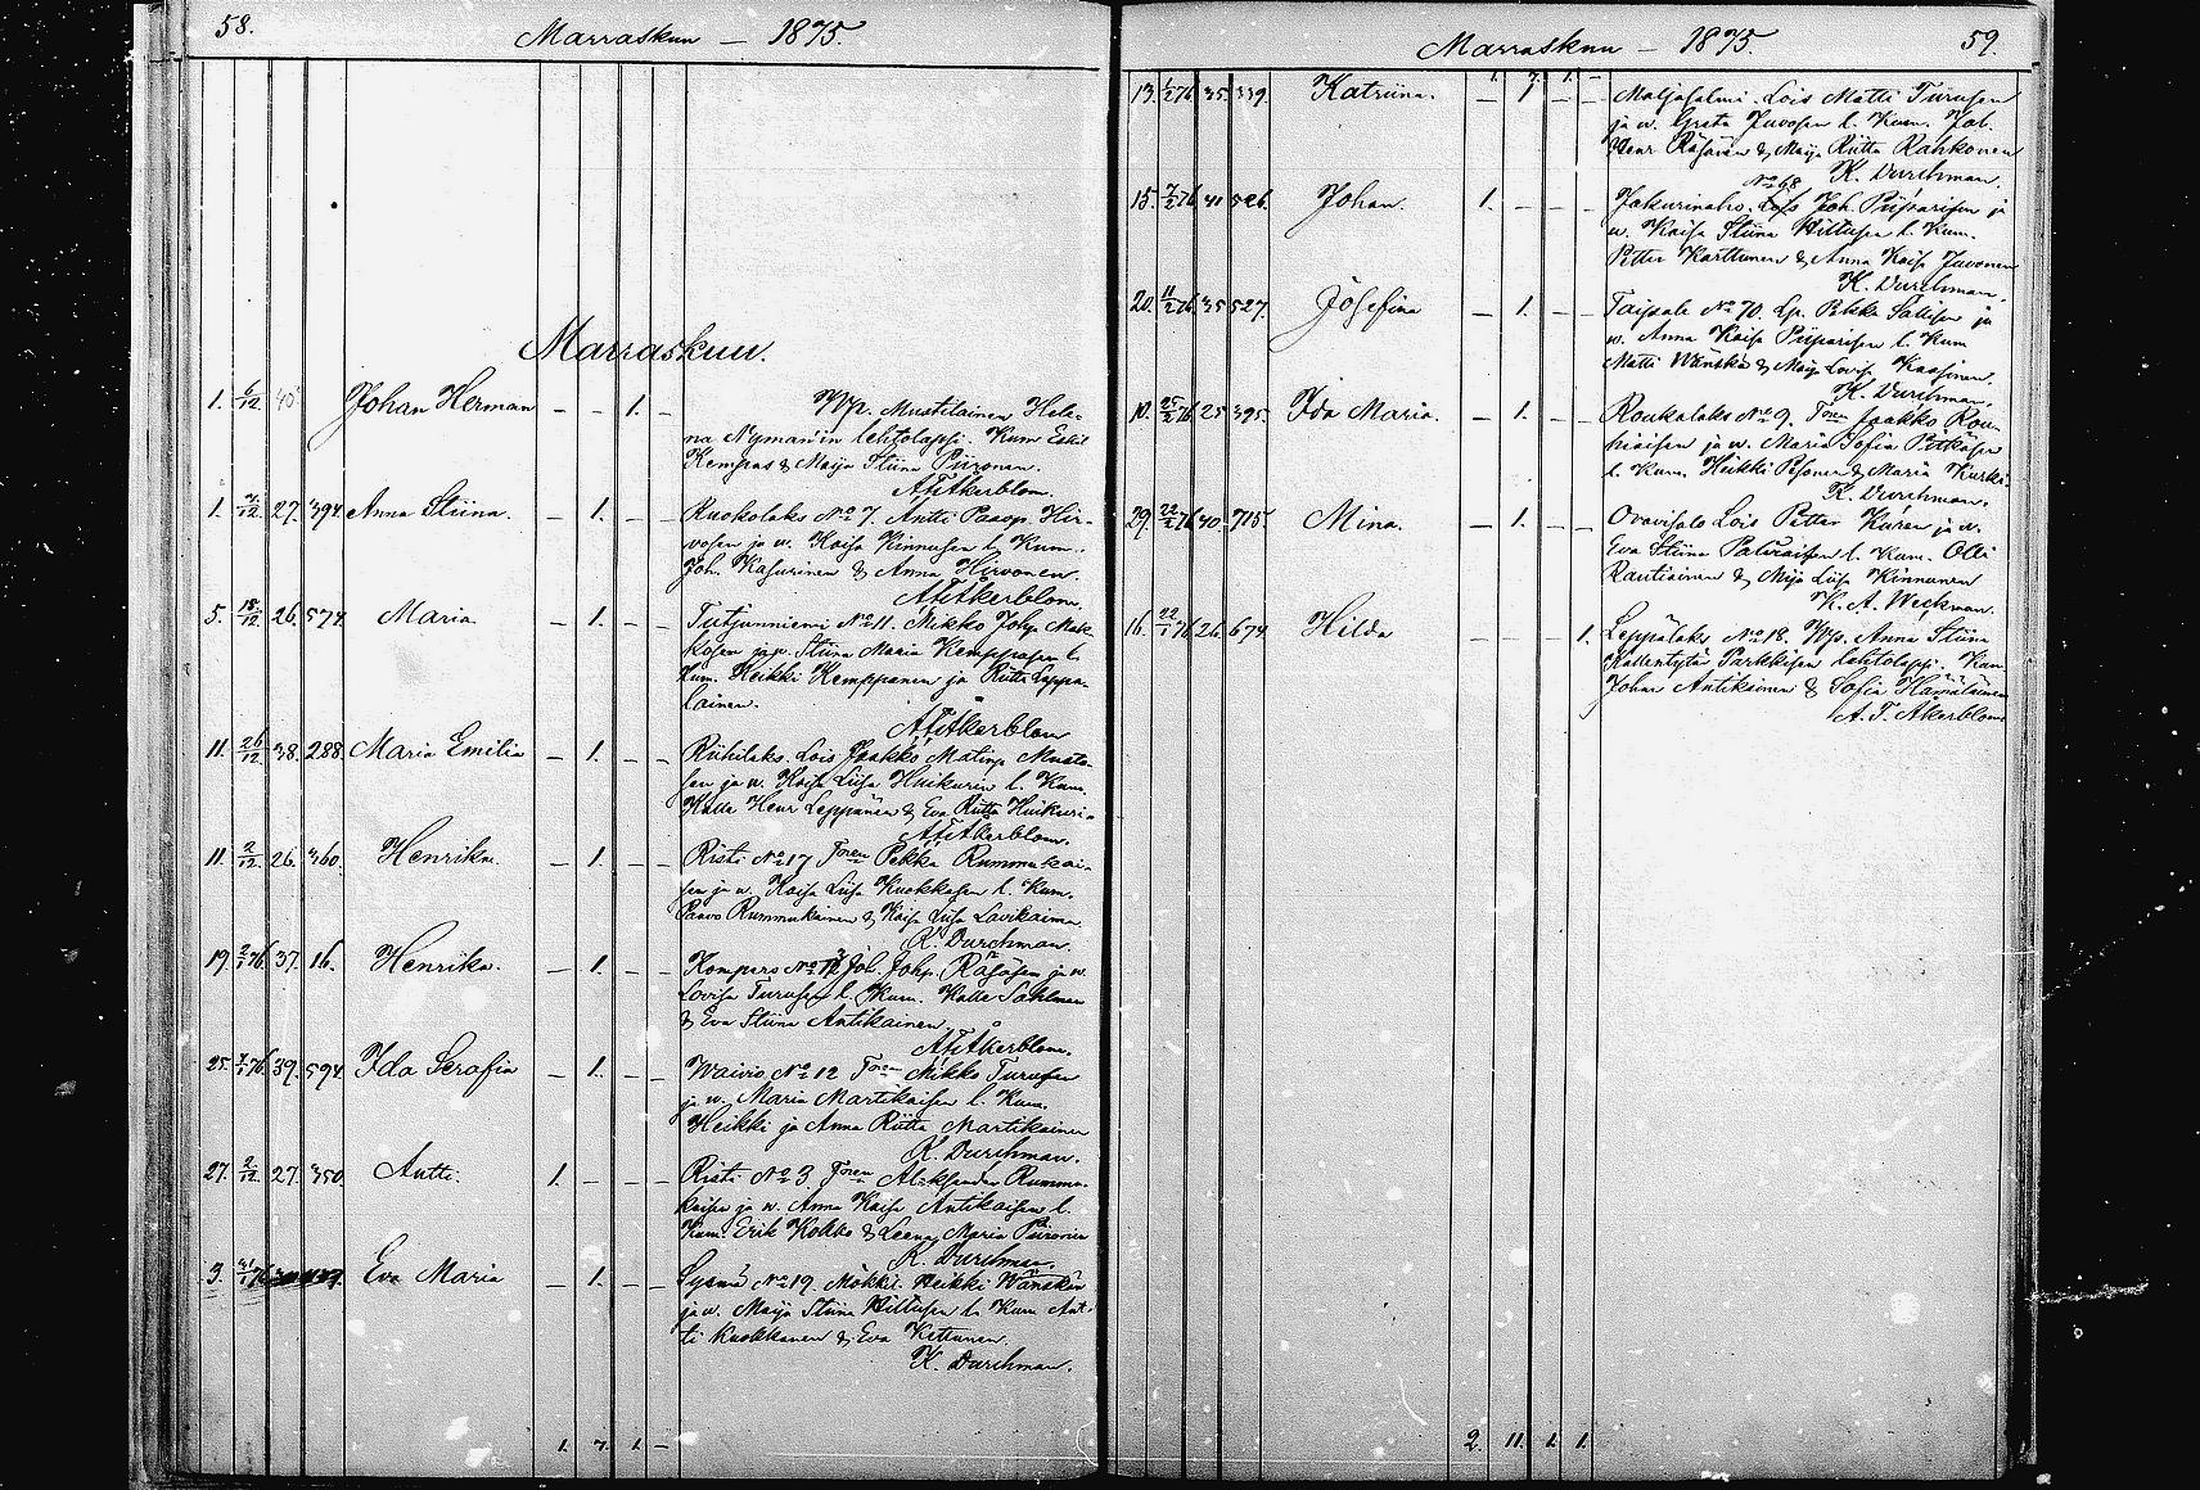 58.
Marraskuu — 1875.
Marraskuu.
1. 6/12. 40 Johan Herman — — 1. — Wp. Mustilainen Hele-
na Nyman'in lehtolapsi. Kum Eskil
Kempas & Maija Stiina Piironen.
A F Åkerblom.
1. 27. 394. Anna Stiina. — 1. — — Ruokolaks No 7. Antti Paavop. Hir-
vosen ja w. Kaisa Kinnusen l. Kum.
Joh. Kasurinen & Anna Hirvonen.
A F Åkerblom.
5. 15/12. 26. 574. Maria — 1. — — Tutjunniemi No 11. Mikko Johp. Mak-
kosen ja p. Stiina Maria Kemppasen l.
Kum. Heikki Kemppanen ja Riitta Leppä-
lainen.
A F Åkerblom
11. 26/12. 38. 288. Maria Emilia — 1. — — Riihilaks. Lois Jaakko Matinp. Musto-
sen ja w. Kaisa Liisa Huikurin l. Kum.
Kalle Henr Leppänen & Eva Riitta Huikuri.
A F Åkerblom.
11. 2/12. 26. 360. Henrika. — 1. — — Risti No 17 Toren Pekka Rummukai-
sen ja w. Kaisa Liisa Kuokkasen l. Kum.
Paavo Rummukainen & Kaisa Liisa Lavikainen
K. Durchman.
19. 2/1 76. 37. 16. Henrika. — 1. — — Kompero No Joh. Johp. Räsäsen ja w.
Lovisa Turusen l. Kum. Kalle Sahlman
& Eva Stiina Antikainen.
A F Åkerblom.
25. 76. 39. 594. Ida Serafia — 1. — — Waivio No 12 Toren Mikko Turusen
ja w. Maria Martikaisen l. Kum.
Heikki ja Anna Riitta Martikainen
K. Durchman.
27. 2/12. 27. 350. Antti. 1. — — — Risti No 3. Toren Aleksander Rummu-
kaisen ja w. Anna Kaisa Antikaisen l.
Kum. Erik Kokko & Leena Maria Piironen
K. Durchman.
3. 76 Eva Maria — 1. — — Sysmä No 19. Mökkil. Heikki Wänskän
ja w. Maija Stiina Hiltusen l. Kum Ant-
ti Kuokkanen & Eva Kettunen.
K. Durchman.
1. 7. 1. —
Marraskuu — 1875.
59.
1. 7. 1. —
13. 1/2 76. 35. 339. Katriina. — 1 — — Maljasalmi. Lois Matti Turusen
ja w. Greta Juvosen l. Kum. Joh.
Henr Räsänen & Maija Riitta Rahkonen
K. Durchman.
No 68
15. 7/2 76. 41 526. Johan. 1. — — — Jakurinaho. Lois Joh. Piiparisen ja
w. Kaisa Stiina Hiltusen l. Kum.
Petter Karttunen & Anna Kaisa Juvonen
K. Durchman.
20. 11/2 76. 35 527. Josefina — 1. — — Taipale No 70. Lp. Pekka Sallisen ja
w. Anna Kaisa Piiparisen l. Kum
Matti Wänskä & Maija Lovisa Kaasinen.
K. Durchman.
10. 25/2 76. 25. 395. Ida Maria. — 1. — — Roukalaks No 9. Toren Jaakko Rou-
hiaisen ja w. Maria Sofia Pitkäsen
l. Kum. Heikki Pesonen & Maria Kurki.
K. Durchman.
29. 22/2 76. 40. 715. Mina. — 1. — — Oravisalo Lois Petter Kuren ja w.
Eva Stiina Palviaisen l. Kum. Olli
Rautiainen & Mija Liisa Kinnunen
K. A. Weckman.
16. 22/1 76. 26. 674. Hilda — — — 1. Leppälaks No 18. Wp. Anna Stiina
Kallentytär Parkkisen lehtolapsi. Kum
Johan Antikainen & Sofia Hämäläinen
A. F. Åkerblom
2. 11. 1. 1.